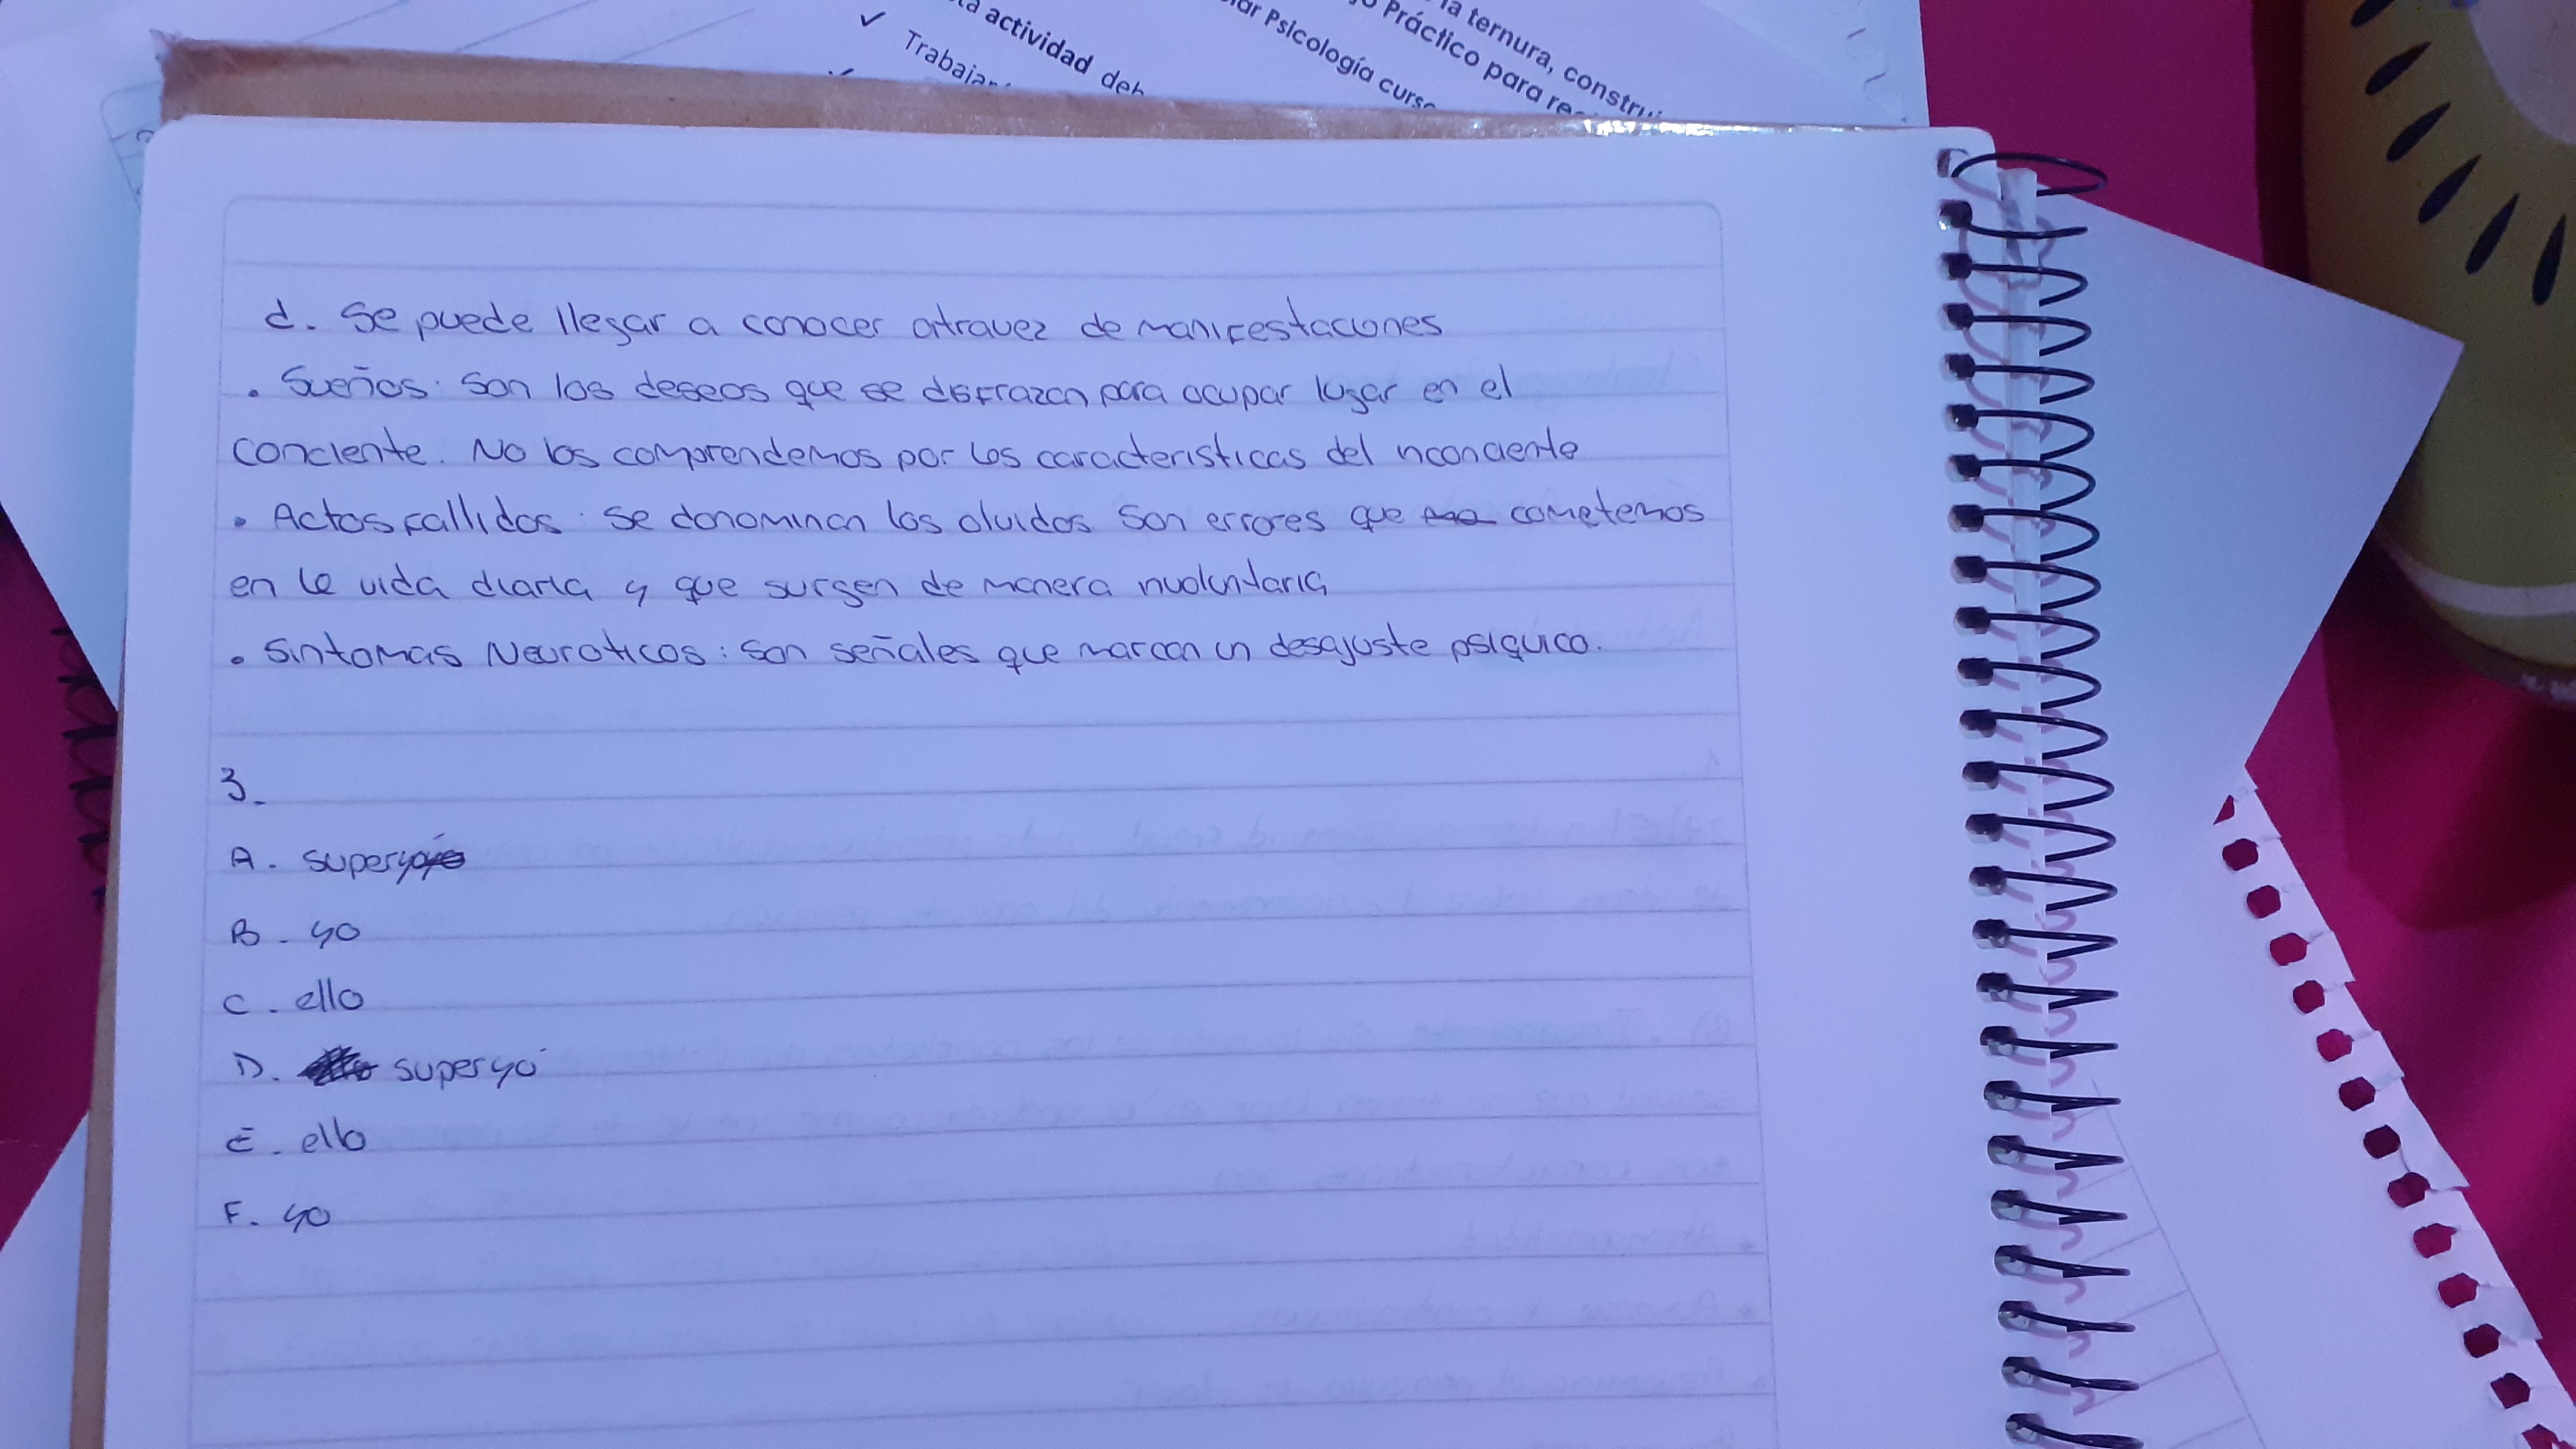 la ternura, construi
Práctico para re
iar Psicología curso
ta actividad deb
✓ Trabajar
d. Se puede llegar a conocer atravez de manifestaciones
• Sueños: Son los deseos que se disfrazan para ocupar lugar en el
conciente. No los comprendemos por las caracteristicas del inconciente
• Actos fallidos: Se donominan los olvidos. Son errores que cometemos
en la vida diaria y que surgen de manera nvoluntaria
• Sintomas Neuroticos: Son señales que marcan un desajuste psiquico.
3.
A. superyo
B. yo
C. ello
D. superyó
E. ello
F. yo